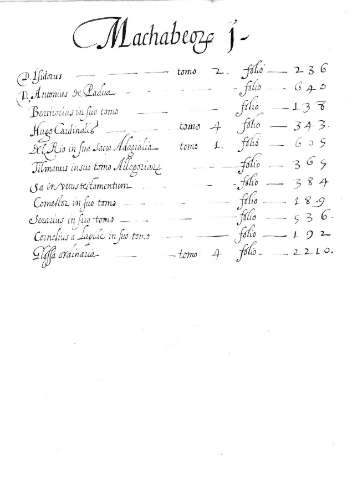 Machabeoꝝ j-
D. Isidorus tomo 2. folio 236
D. Antonius de Padua folio 640
in suo tomo folio 138
Hugo Cardinalis tomo 4 folio 343.
Del Rio in suo Sacro Adagialia tomo 1. folio 605
Tilmanus in suo tomo Allegoriar folio 365
Sa in vetus testamentum folio 384
in suo tomo folio 189
Serarius in suo tomo folio 536.
Cornelius a Lapide in suo tomo folio 192
Glossa ordinaria tomo 4 folio 2210.